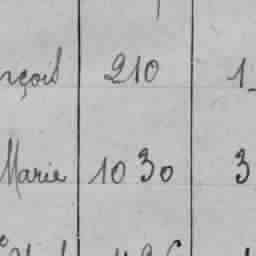 nçois 210 1
Marie 1030 3